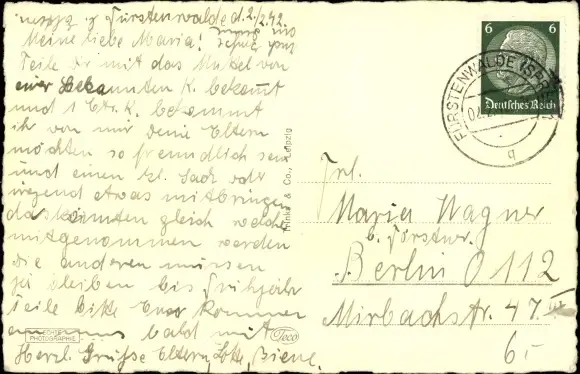 Fürstenwalde d. 2./2.42.
Meine liebe Maria!
Teile Dir mit das Makel von
einer Bekannten K. bekommt
und 1 Ctr. K. bekommt
ihr von mir Deine Eltern
möchten so freundlich sein
und einen kl. Sack oder
irgend etwas mitbringen
das könnten gleich welche
mitgenommen werden
die anderen müssen
bleiben bis Frühjahr
Teile bitte Euer kommen
bald mit
Herzl. Grüße Eltern, Lotte, Biene.
ECHTE PHOTOGRAPHIE
Teco
& Co., Leipzig
6 6
Deutsches Reich
FÜRSTENWALDE (SPREE)
q
Frl.
Maria Wagner
b. Förstner.
Berlin O 112
Mirbachstr. 47 III
6.-